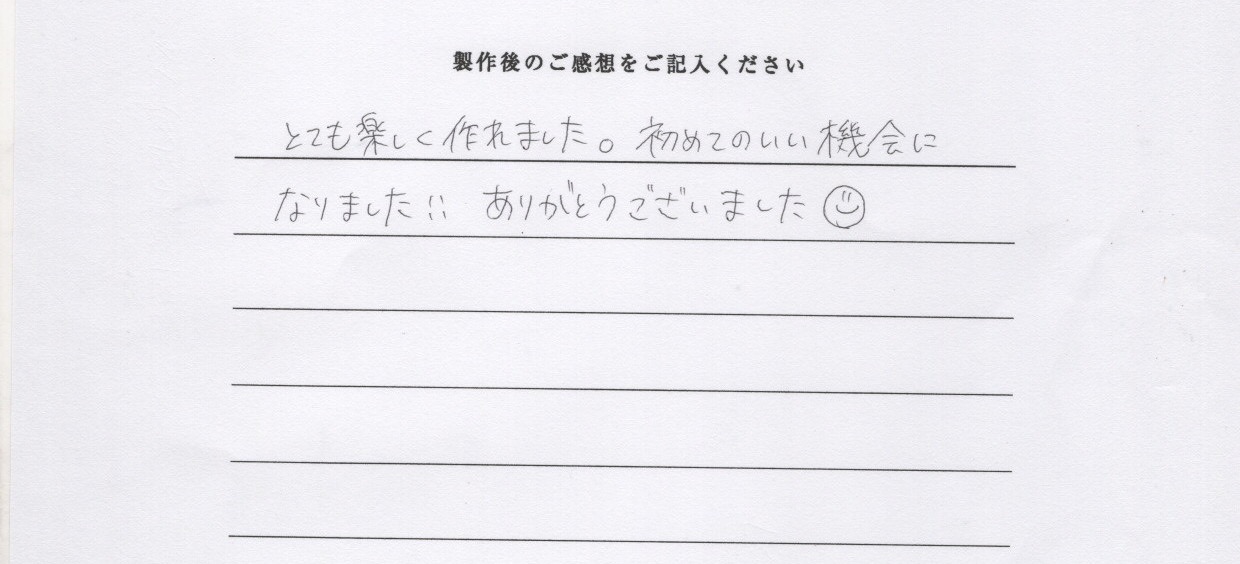 製作後のご感想をご記入ください
とても楽しく作れました。初めてのいい機会に
なりました!! ありがとうございました☺